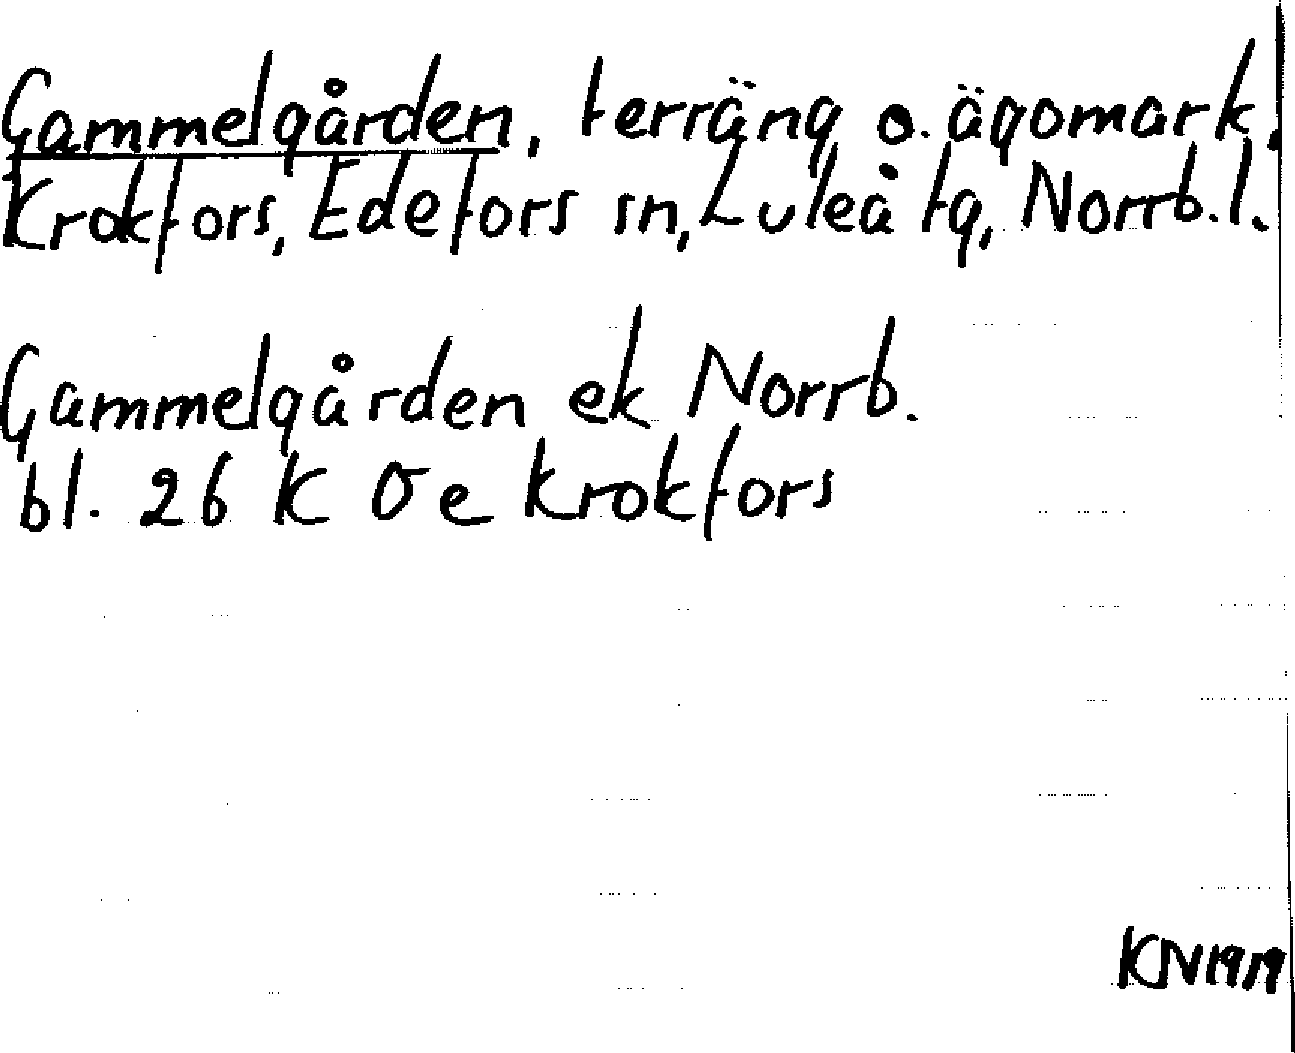 Gammelgården, terräng o. ägomark,
Krokfors, Edefors sn, Luleå tg, Norrb. l.
Gammelgården ek Norrb.
bl. 26 K σ e Krokfors
KN 1919